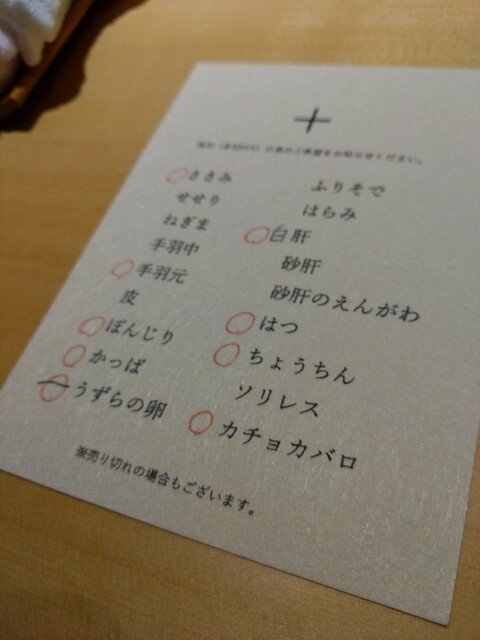 ください。
ささみ
せせり
ねぎま
手羽中
手羽元
皮
ぼんじり
かっぱ
うずらの卵
ふりそで
はらみ
白肝
砂肝
砂肝のえんがわ
はつ
ちょうちん
ソリレス
カチョカバロ
※売り切れの場合もございます。